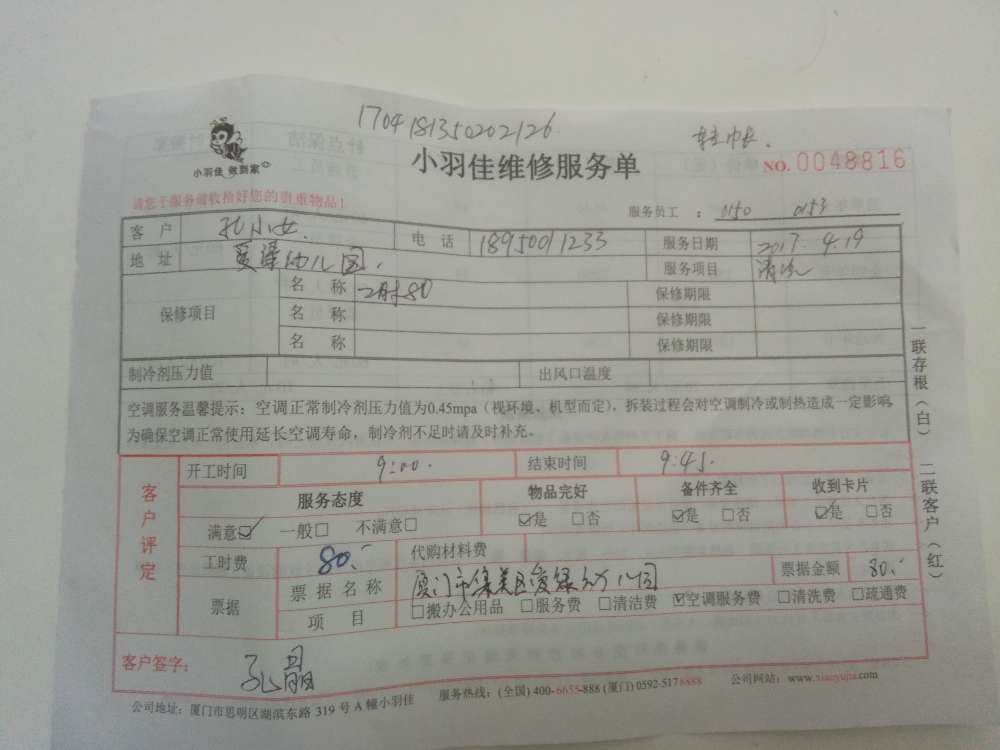 1704181350202126
小羽佳 做到家
小羽佳维修服务单
NO.0048816
请您于服务前收拾好您的贵重物品！
服务员工 ： 0150 0153
客 户 孔小女 电 话 18950011233 服务日期 2017.4.19
地 址 幼儿园 服务项目 清洗
保修项目 名 称 80 保修期限
名 称 保修期限
名 称 保修期限
制冷剂压力值 出风口温度
空调服务温馨提示：空调正常制冷剂压力值为0.45mpa（视环境、机型而定），拆装过程会对空调制冷或制热造成一定影响
为确保空调正常使用延长空调寿命，制冷剂不足时请及时补充。
一联存根（白） 二联客户（红）
客户评定
开工时间 9:00. 结束时间 9:45.
服务态度 物品完好 备件齐全 收到卡片
满意☑ 一般□ 不满意□ ☑是 □否 ☑是 □否 ☑是 □否
工时费 80.- 代购材料费
票据 票据名称 厦门市集美区爱绿幼儿园 票据金额 80.-
项 目 □搬办公用品 □服务费 □清洁费 ☑空调服务费 □清洗费 □疏通费
客户签字： 孔晶
公司地址：厦门市思明区湖滨东路 319 号 A 幢小羽佳 服务热线：(全国) 400-6655-888 (厦门) 0592-5178888 公司网站：www.xiaoyujia.com